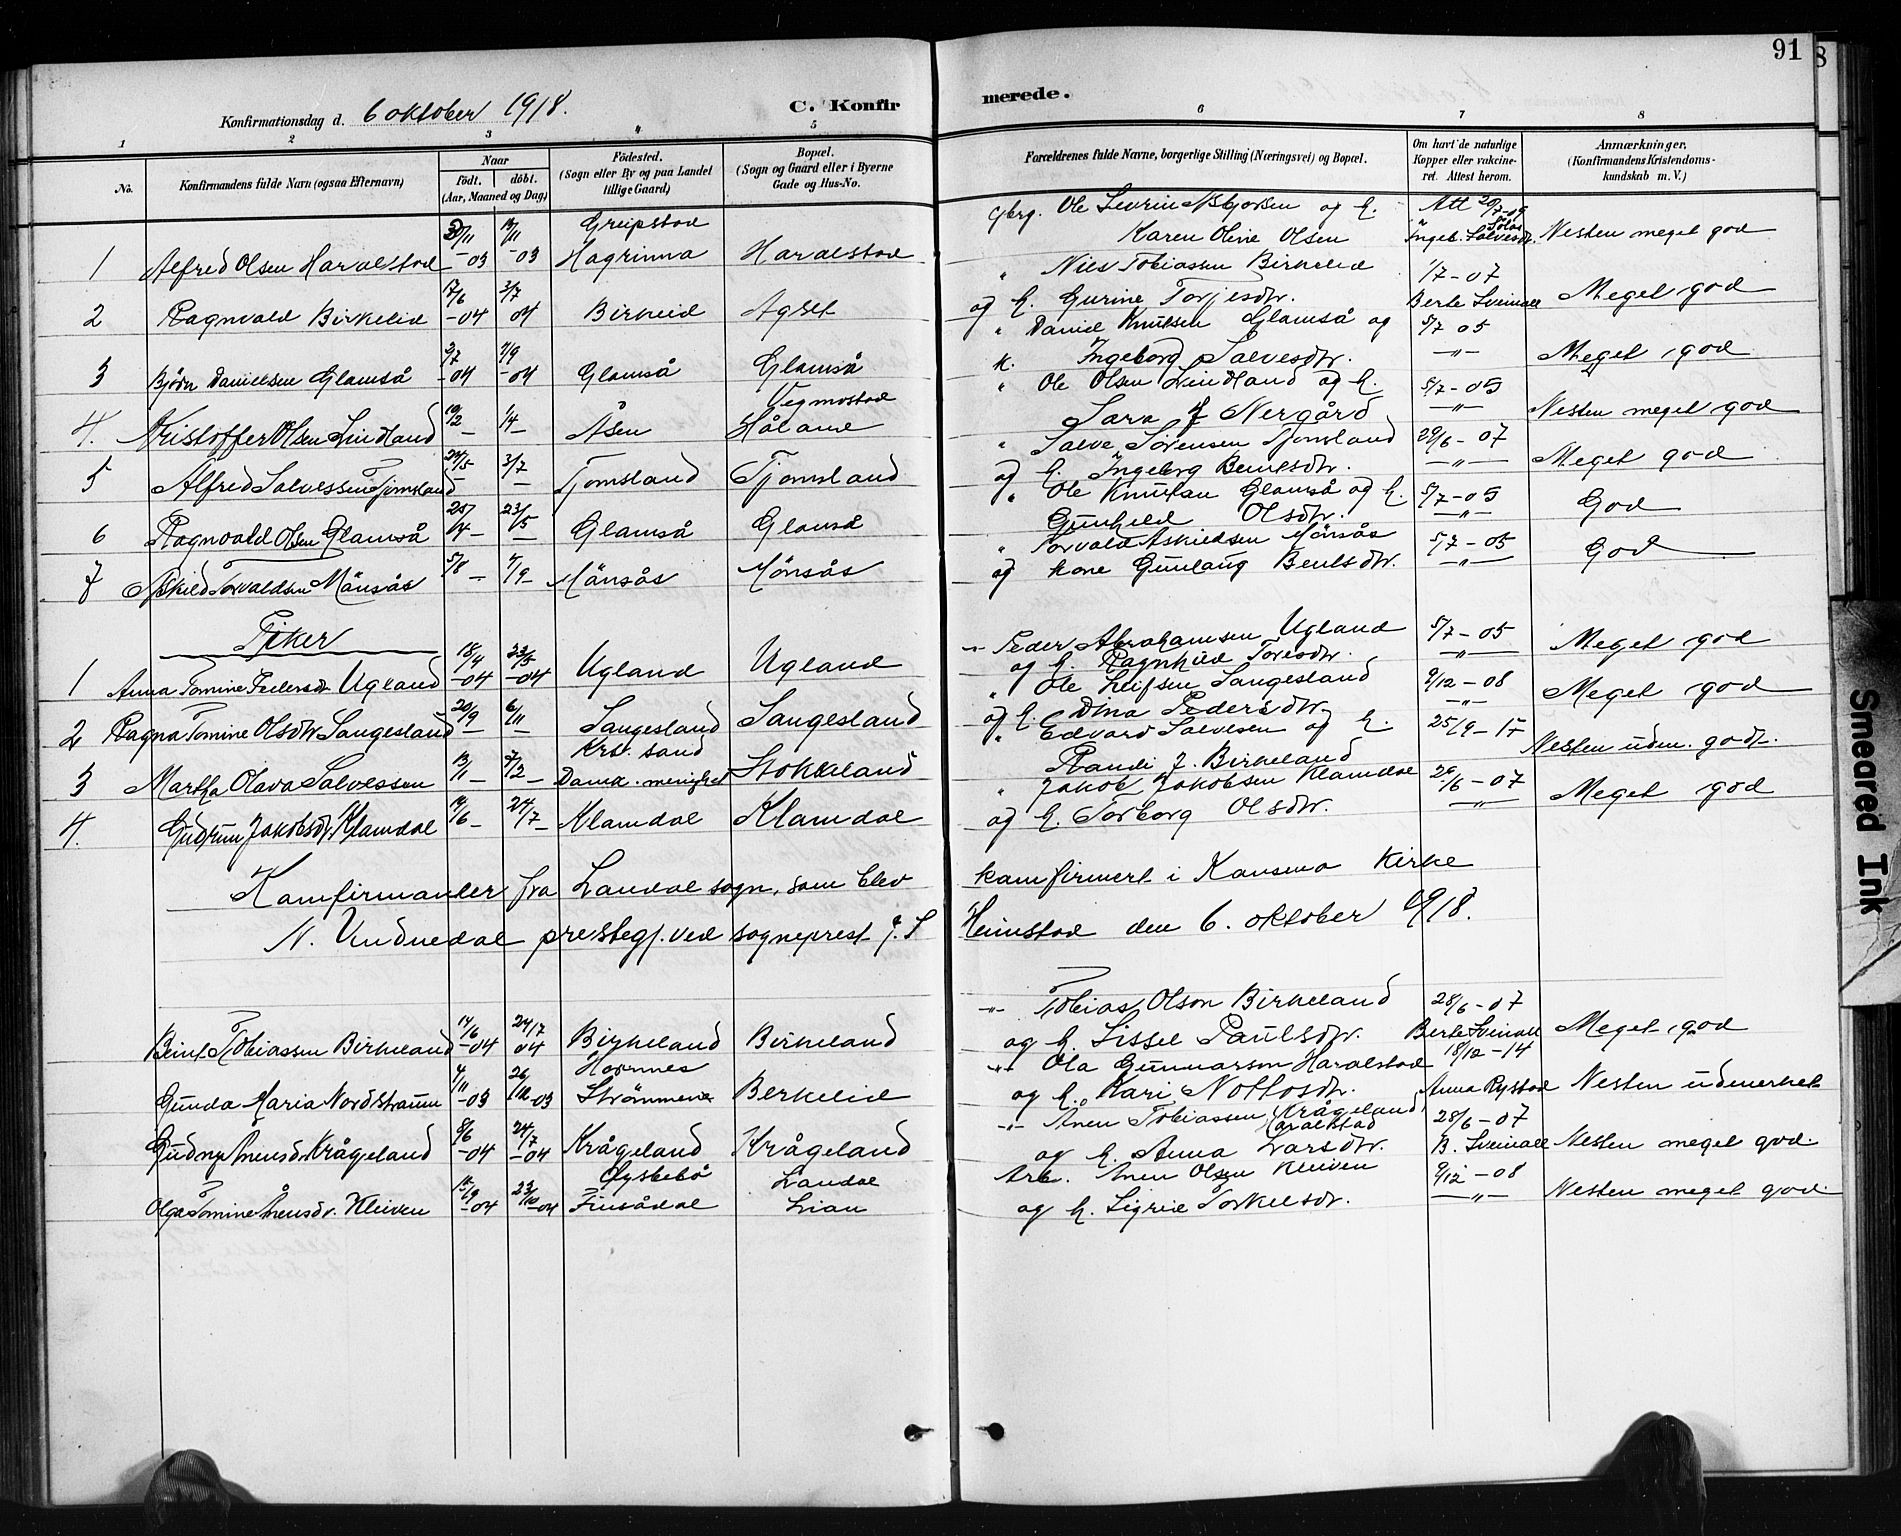 91
8
Konfirmationsdag d. 6 oktober 1918.
C. Konfirmerede.
1 2 3 4 5 6 7 8
No.
Konfirmandens fulde Navn (ogsaa Efternavn)
Naar
født. døbt.
(Aar, Maaned og Dag)
Fødested.
(Sogn eller By og paa Landet
tillige Gaard)
Bopæl.
(Sogn og Gaard eller i Byerne
Gade og Hus-No.
Forældrenes fulde Navne, borgerlige Stilling (Næringsvei) og Bopæl.
Om havt de naturlige
Kopper eller vaccine-
ret. Attest herom.
Anmærkninger,
(Konfirmandens Kristendoms-
kundskab m. V.)
1 Alfred Olsen Haralstad /11 -03 /11 -03 Greipstad Hagrinna Haralstad
Gbrg. Ole Severin Asbjørsen og h. Karen Oline Olsen Att 20/7-09 Ingeb. Salvesdtr. Nesten meget god
2 Ragnvald Birkelid 7/6 -04 3/7 04 Birkelid Agset
" Niels Tobiassen Birkelid og h. Gurine Torjesdtr. 1/7-07 Berte Sveinall Meget god
3 Bjørn Danielsen Glamså 2/7 -04 4/9 -04 Glamså Glamså
" Daniel Knutsen Glamså og k. Ingeborg Salvesdtr. 5/7 05 -"- Meget god
4. Kristoffer Olsen Lindland 19/2 - 1/4 - Åsen Vegmostad Hålane
" Ole Olsen Lindland og h. Sara f Nergård 5/7-05 -"- Nesten meget god
5 Alfred Salvessen Tjomsland 24/5 - 3/7 - Tjomsland Tjomsland
" Salve Sørensen Tjomsland og h. Ingeborg Bentsdtr. 29/6-07 -"- Meget god
6 Ragnvald Olsen Glamså 25/4 - 23/5 - Glamså Glamså
" Ole Knutsen Glamså og h. Gunhild Olsdtr. 5/7-05 -"- God
7 Askild Torvaldsen Månsås 5/8 - 4/9 - Månsås Mönsås
" Torvald Askildsen Mönsås og kone Gunlaug Bentsdtr. 5/7-05 -"- God
Piker
1 Anna Tomine Pedersdtr Ugland 18/4 -04 23/5 -04 Ugland Ugland
-"- Peder Abrahamsen Ugland og h. Ragnhild Toresdtr. 5/7-05 -"- Meget god
2 Ragna Tomine Olsdtr Sangesland 20/9 - 6/11 - Sangesland Sangesland
" Ole Leifsen Sangesland og h. Dina Pedersdtr 9/12-08 -"- Meget god
3 Martha Olava Salvessen 13/11 - 7/2 - Krst. sand Domk. menighet Stokkeland
" Edvard Salvesen og h. Randi f. Birkeland 25/9-15 Nesten uden. godt.
4. Gudrun Jakobsdtr Klamdal 19/6 - 24/7 - Klamdal Klamdal
" Jakob Jakobsen Klamdal og h. Torborg Olsdtr. 29/6-07 -"- Meget god
Kamfirmanter fra Laudal sogn, som blev kamfirmert i Konsmo Kirke
N. Undnedal prestegj. ved sogneprest J. S Heimstad den 6. oktober 1918.
Beint Tobiassen Birkeland 14/6 -04 24/7 04 Birkeland Birkeland
-"- Tobias Olson Birkeland og h. Sissel Paulsdtr. 28/6-07 Berte Sveinall Meget god
Gunda Maria Nordstraum 4/11 -03 26/12 -03 Hornnes Strömmene Berkelid
-"- Ola Gunnarson Haralstad og h. Kari Nottosdtr. 18/12-14 Anna Rystad Nesten udmerket
Gudny Ånensdtr Krågeland 9/6 -04 24/7 -04 Krågeland Krågeland
-"- Anen Tobiassen Krågeland Haralstad og h. Anna Larsdtr. 28/6-07 B. Sveinall Nesten meget god.
Olga Tomine Ånensdr. Kleiven 15/9 -04 23/10 -04 Øyslebø Finsådal Laudal Lian
Arb. Anen Olsen Kleiven og h. Sigrid Torkelsdtr. 9/12-08 -"- Nesten meget god.
Smeared Ink